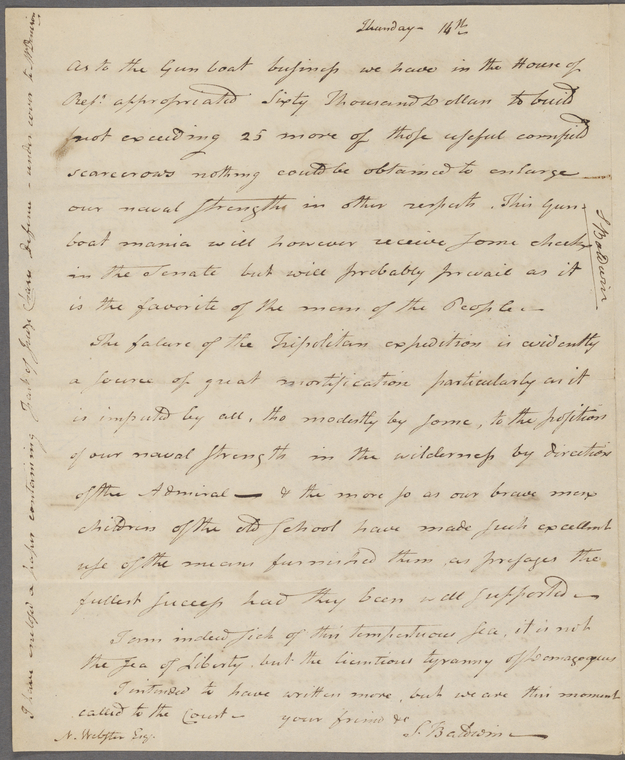 Thursday - 14th
As to the Gun boat business we have in the House of
Reps. appropriated Sixty Thousand Dollars to build
not exceeding 25 more of those useful cornfield
scarecrows nothing could be obtained to enlarge
our naval strength in other respects. This Gun-
boat mania will however receive some check
in the Senate but will probably prevail as it
is the favorite of the men of the People -
The falure of the Tripolitan expedition is evidently
a source of great mortification particularly as it
is imputed by all, tho modestly by some, to the position
of our naval strength in the wilderness by direction
of the Admiral — & the more so as our brave men
children of the old School have made such excellent
use of the means furnished them, as presages the
fullest success had they been well supported -
I am indeed sick of this tempestuous sea, it is not
the sea of Liberty, but the licentious tyranny of Demagogues
I intended to have written more, but we are this moment
called to the Court - your friend &c
S. Baldwin
N. Webster Esq.
S Baldwin
I have enclosed a paper containing part of Judge Chase Defense - under cover to Mr